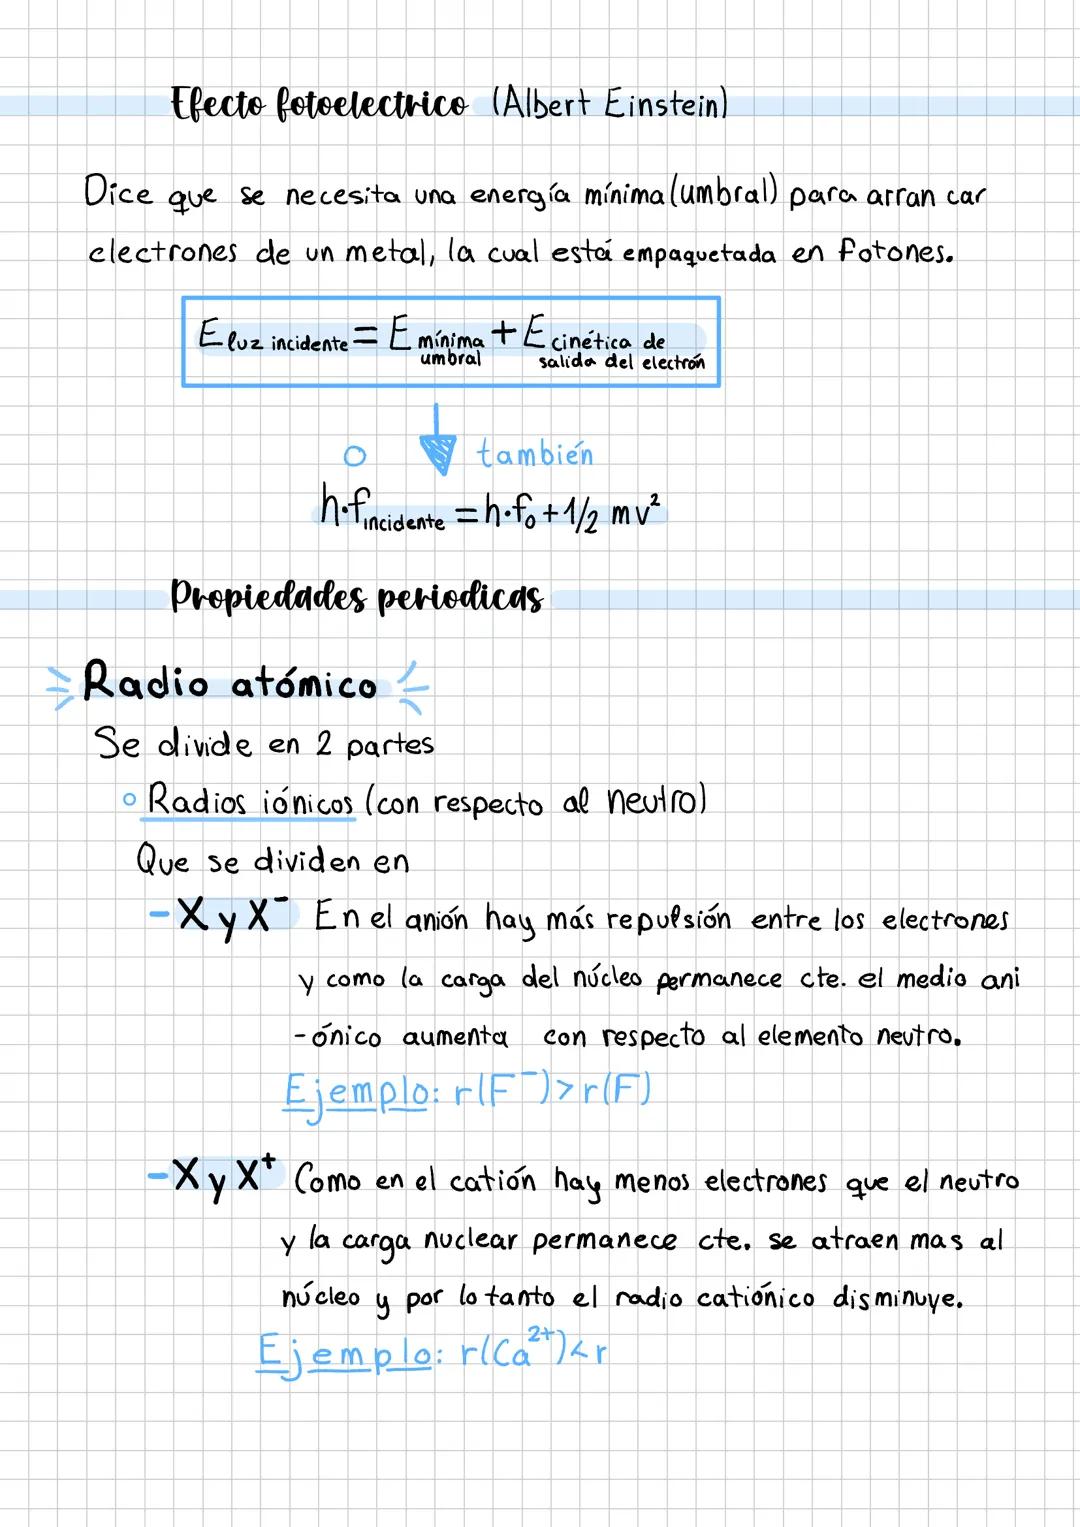 Efecto fotoelectrico (Albert Einstein)
Dice que se necesita una energía mínima (umbral) para arran car
electrones de un metal, la cual está empaquetada en fotones.
E luz incidente = E mínima umbral + E cinética de salida del electrón
o también
h·f incidente = h·f₀ + 1/2 mv²
Propiedades periodicas
Radio atómico
Se divide en 2 partes
Radios iónicos (con respecto al neutro)
Que se dividen en
- X y X⁻ En el anión hay más repulsión entre los electrones
y como la carga del núcleo permanece cte. el medio ani
-ónico aumenta con respecto al elemento neutro.
Ejemplo: r(F⁻)>r(F)
- X y X⁺ Como en el catión hay menos electrones que el neutro
y la carga nuclear permanece cte. se atraen mas al
núcleo y por lo tanto el radio catiónico disminuye.
Ejemplo: r(Ca²⁺)<r